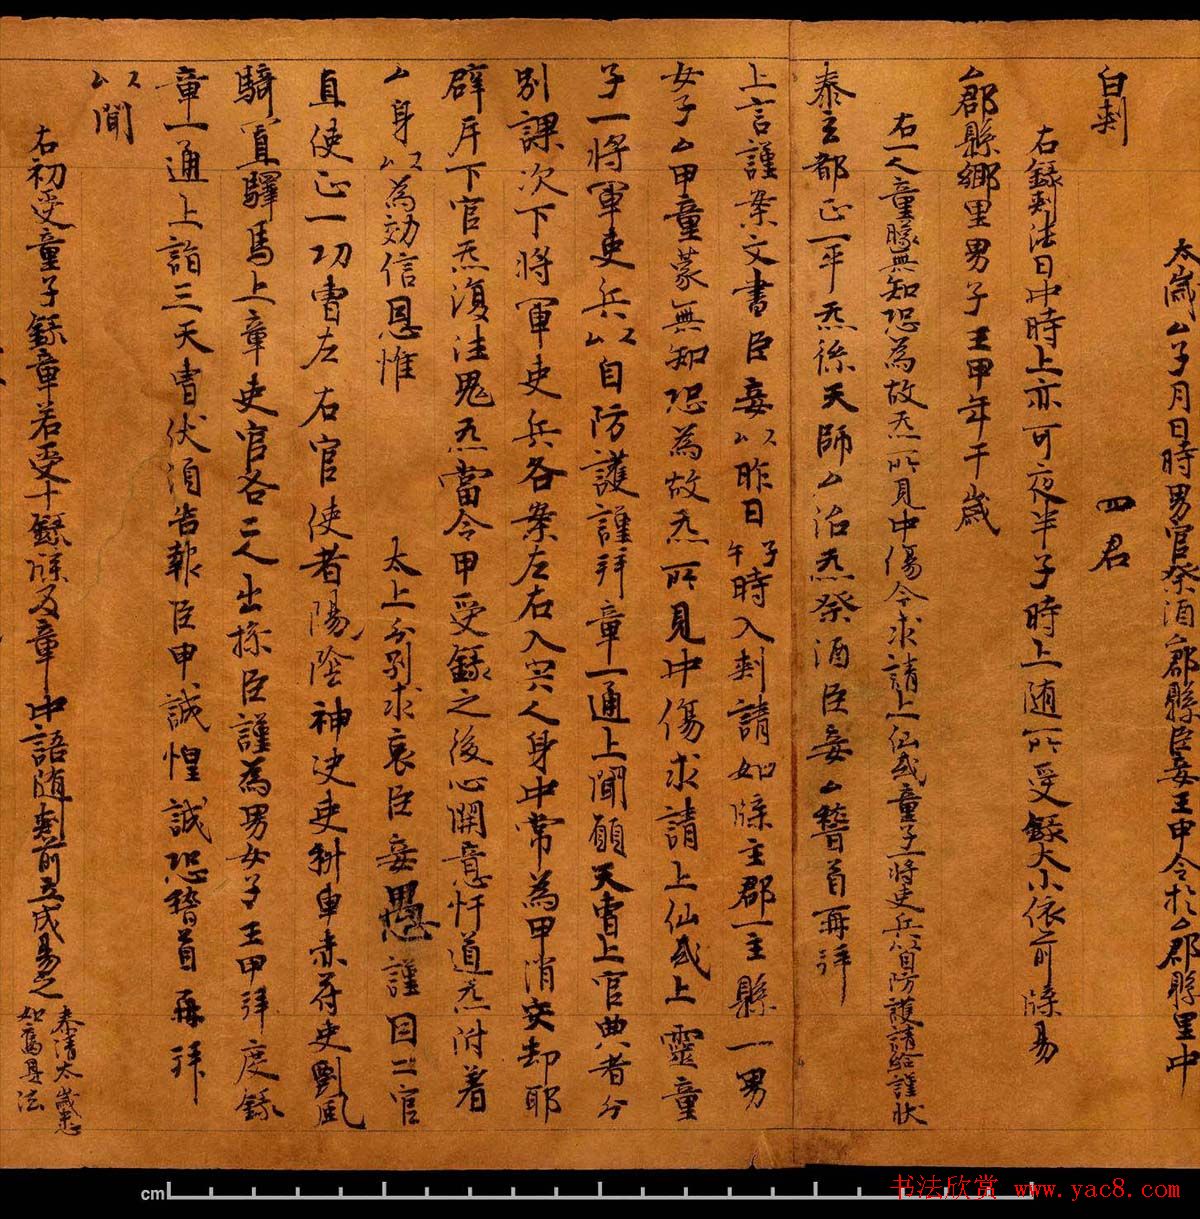 太歲厶子月日時男官祭酒厶郡縣臣妾王甲令於厶郡縣里中
四君
白刾
右錄刾法日中時上亦可夜半子時上随所受錄大小依前牒易
厶郡縣鄉里男子王甲年千歲
右一人童矇無知恐為故炁所見中傷今求請上仙或童子一將吏兵以自防護請給謹狀
泰玄都正一平炁係天師厶治炁祭酒臣妾厶稽首再拜
上言謹案文書臣妾以昨日子午時入刾請如牒主郡一主縣一男
女子厶甲童蒙無知恐為故炁所見中傷求請上仙或上靈童
子一將軍吏兵以自防護謹拜章一通上聞願天曹上官典者分
別課次下將軍吏兵各案左右入其人身中常為甲消灾却耶
辟斥下官炁復注鬼炁當令甲受錄之後心開意忓道炁附着
厶身以為効信恩惟 太上分別求哀臣妾愚謹因二官
直使正一功曹左右官使者陽陰神决吏科車赤苻吏罰風
騎置驛馬上章吏官各二人出操臣謹為男女子王甲拜度錄
章一通上詣三天曹伏須告報臣甲誠惶誠恐稽首再拜
以聞
右初受童子錄章若受十錄牒及章中語随刾前立成易之
泰清太歲悉
如舊具法
cm
书法欣赏 www.yac8.com